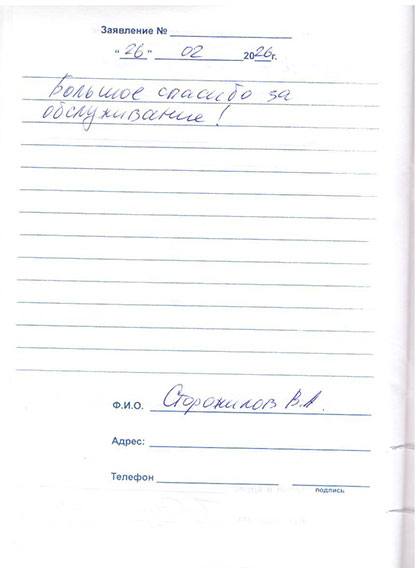 Заявление №
"26" 02 2026г.
Большое спасибо за
обслуживание!
Ф.И.О. Сторожилов В.А.
Адрес:
Телефон
подпись